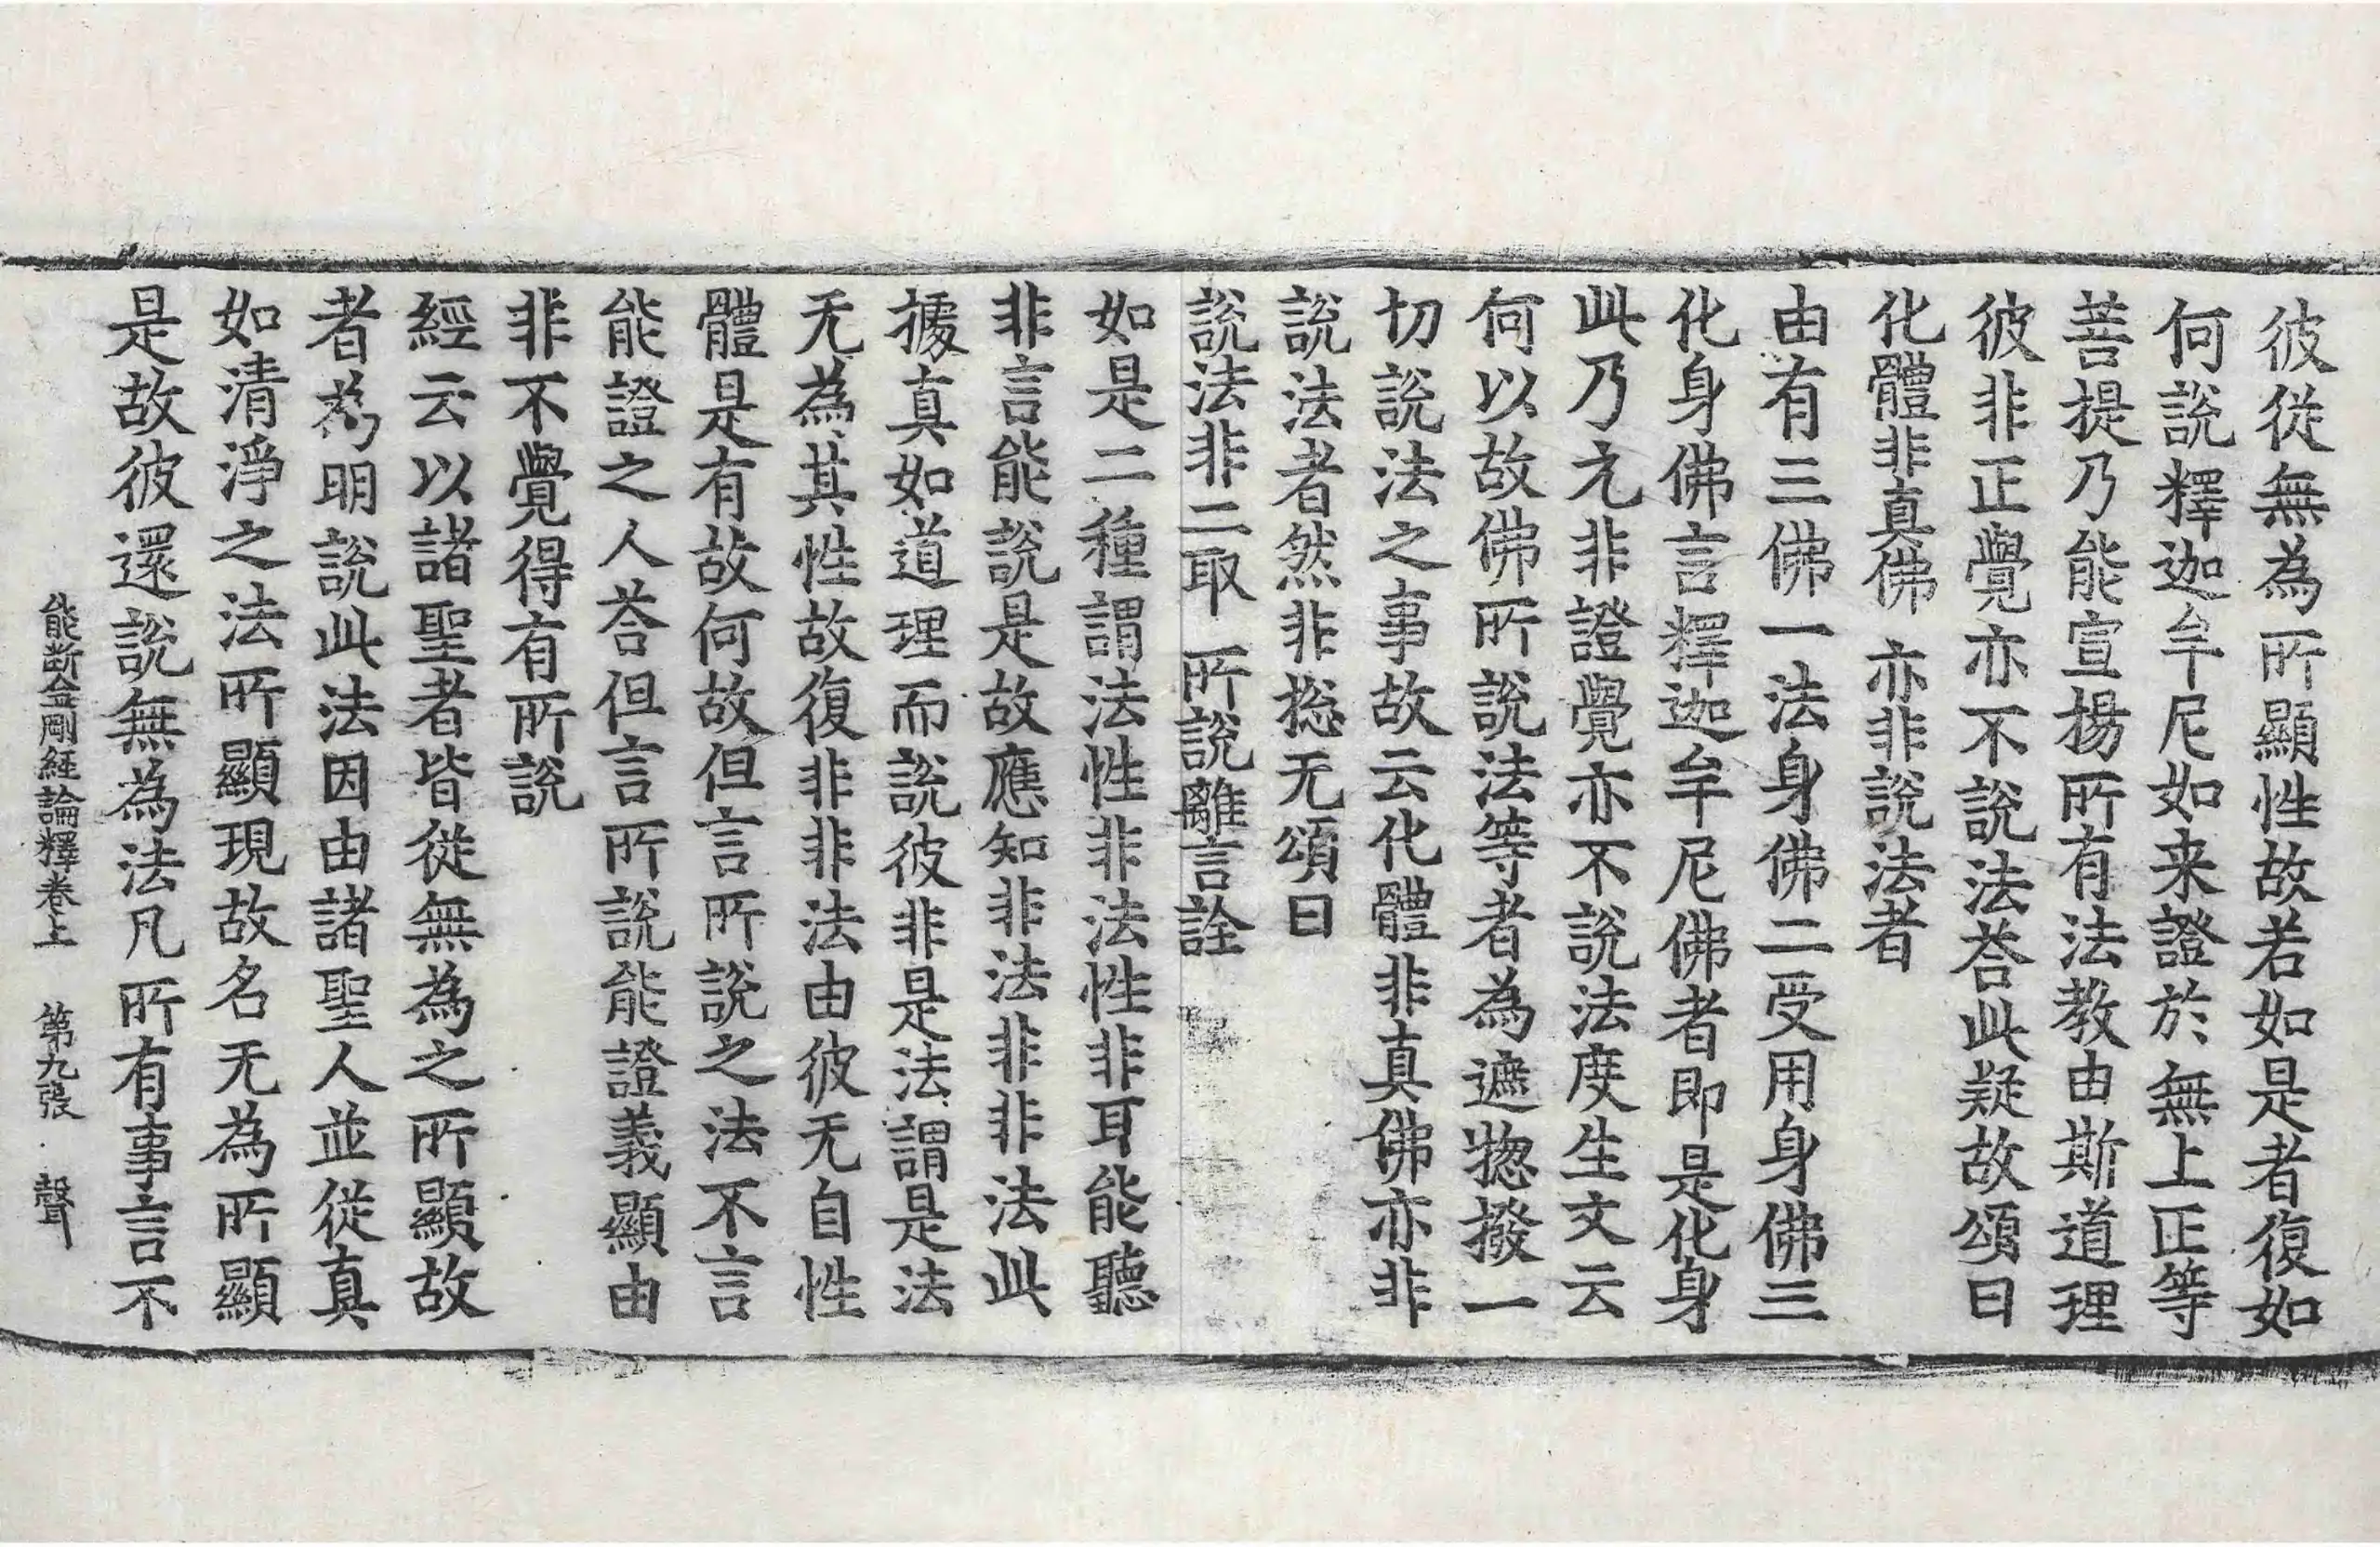 彼從無為所顯性故若如是者復如
何說釋迦牟尼如来證於無上正等
菩提乃能宣揚所有法教由斯道理
彼非正覺亦不說法荅此疑故頌曰
化體非真佛　亦非說法者
由有三佛一法身佛二受用身佛三
化身佛言釋迦牟尼佛者即是化身
此乃元非證覺亦不說法度生文云
何以故佛所說法等者為遮揔撥一
切說法之事故云化體非真佛亦非
說法者然非捴无頌曰
說法非二取　所說離言詮
如是二種謂法性非法性非耳能聽
非言能說是故應知非法非非法此
據真如道理而說彼非是法謂是法
无為其性故復非非法由彼无自性
體是有故何故但言所說之法不言
能證之人荅但言所說能證義顯由
非不覺得有所說
經云以諸聖者皆從無為之所顯故
者為明說此法因由諸聖人並從真
如清淨之法所顯現故名无為所顯
是故彼還說無為法凡所有事言不
能断金剛経論釋卷上　第九張　聲